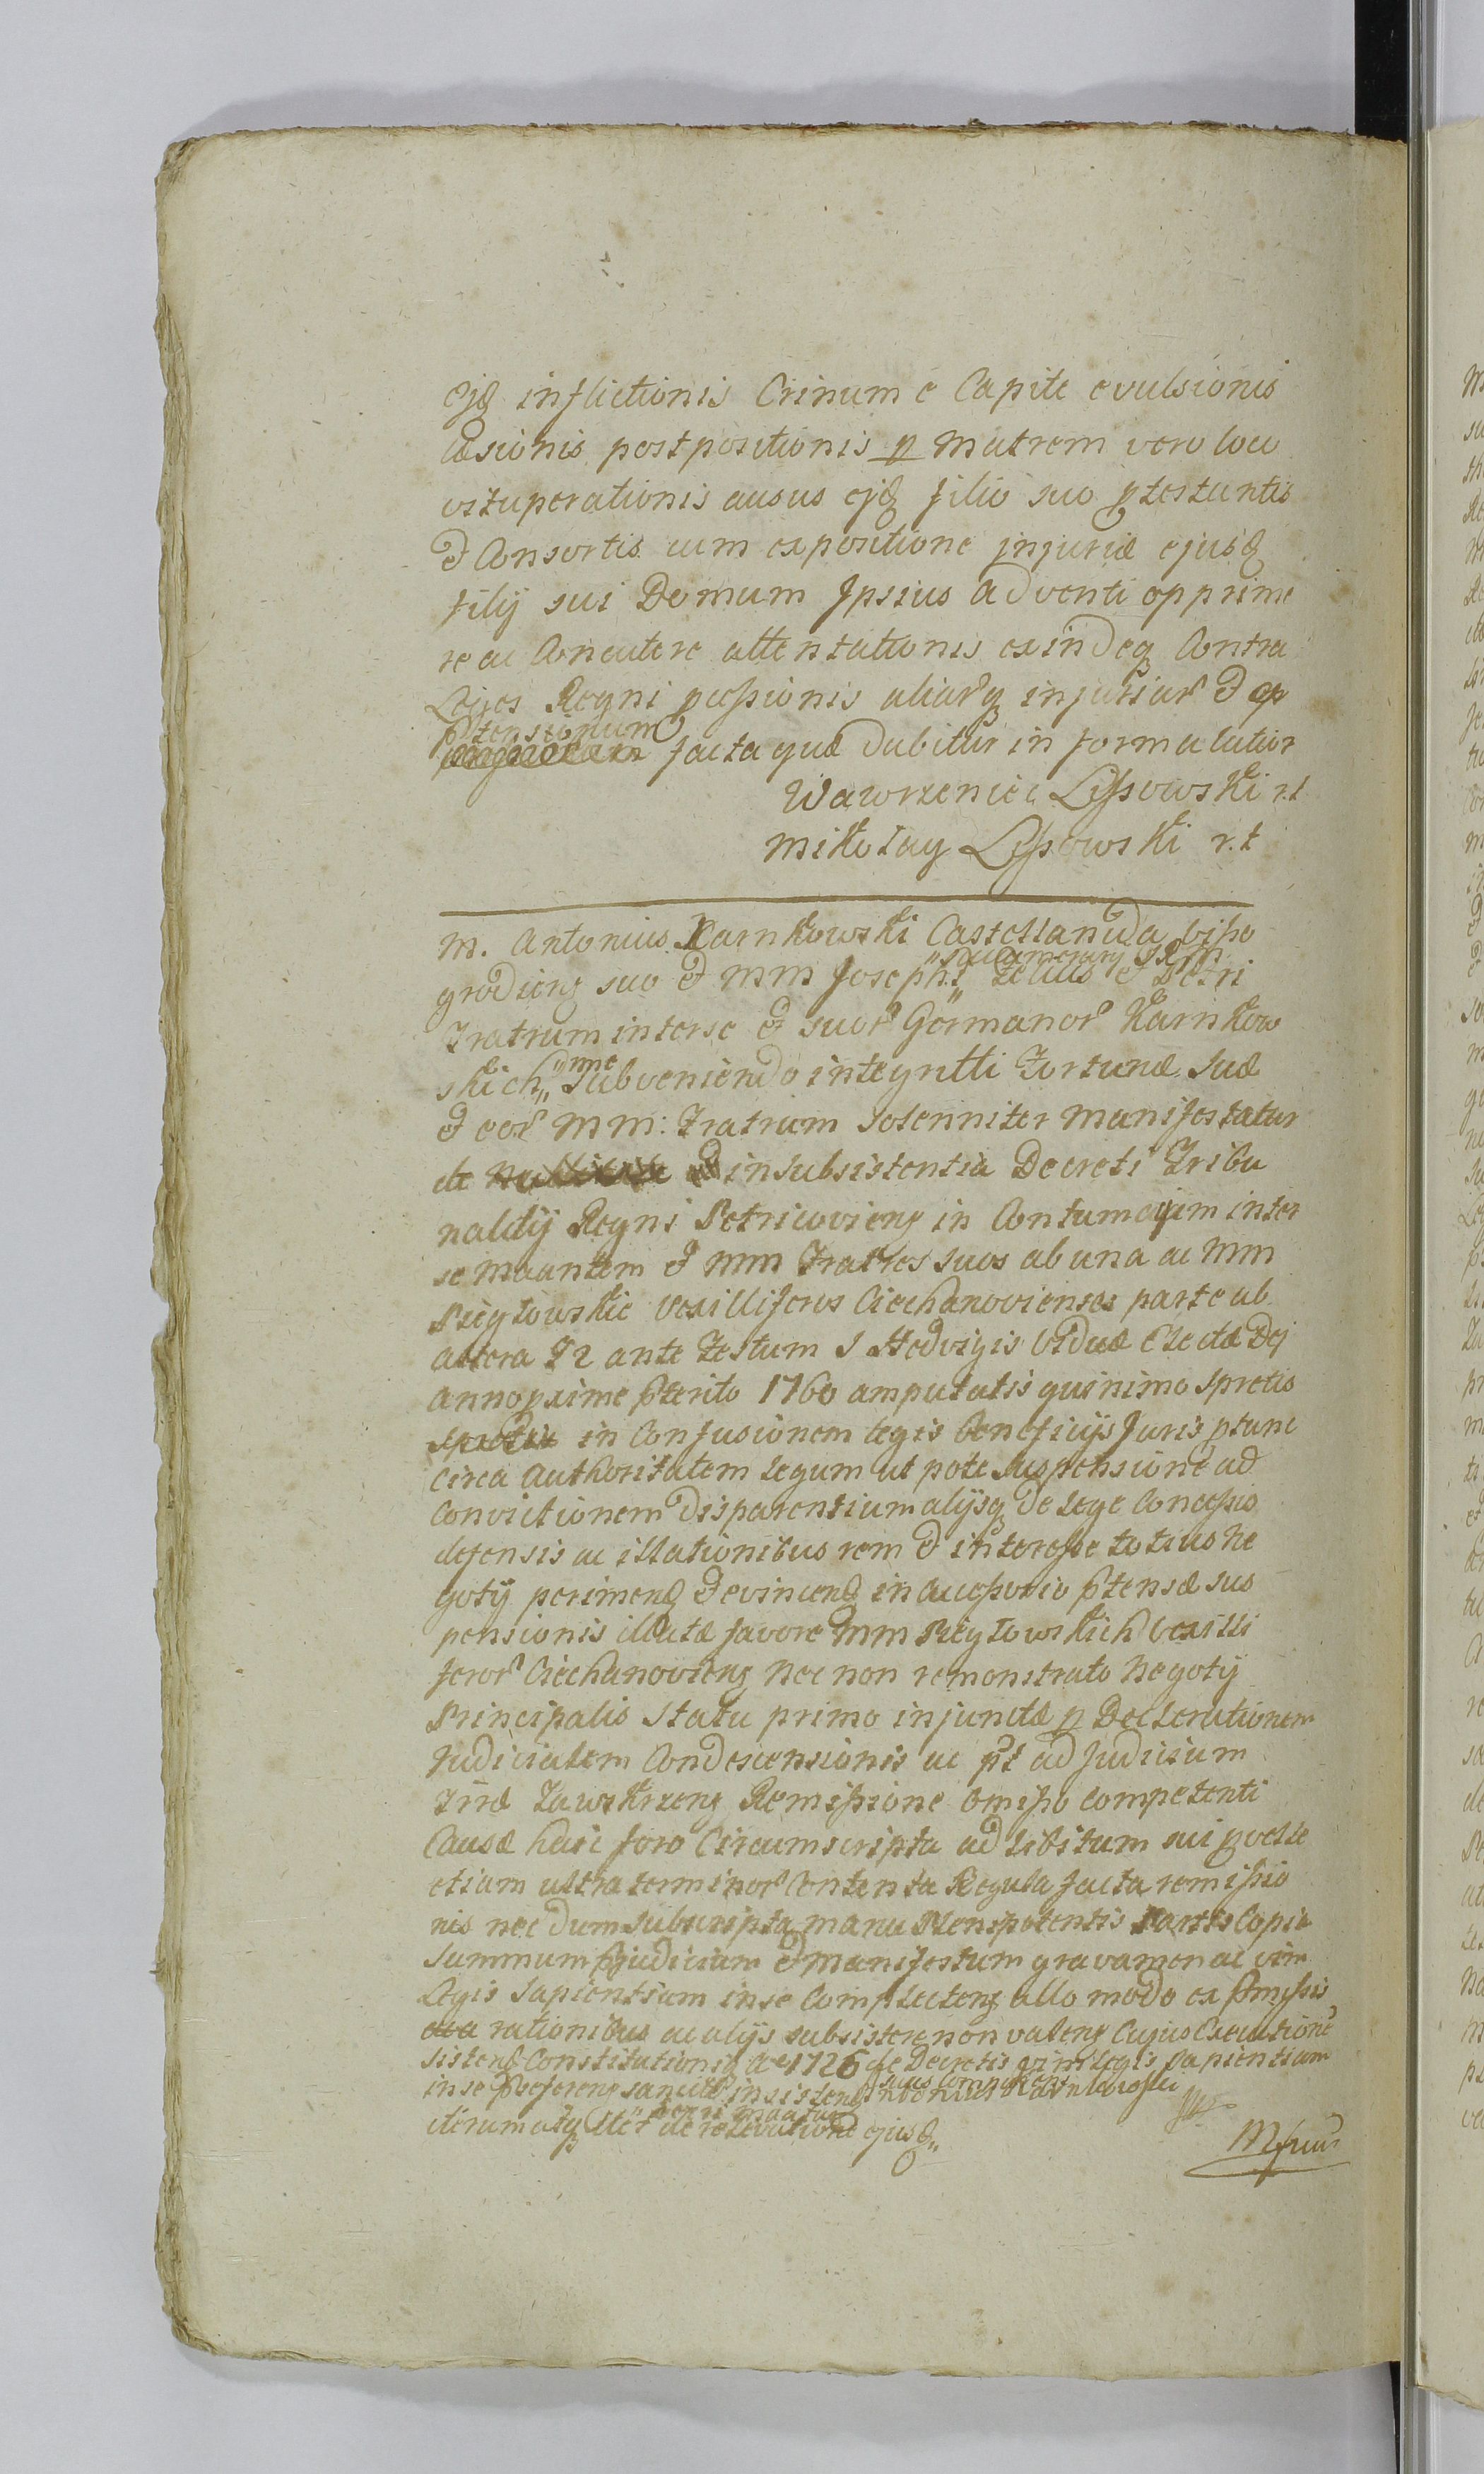 ejq inflictionis Crinum e Capite evulsionis
læsionis postpositionis p Matrem vero loco
vituperationis ausus ejq filio suo ptestantis
et Consortis cum expositione injuriæ ejusq
filij sui Domum Ipsius adventi opprime
re ac Concutere attentationis exindeq Contra
Leges Regni peßionis aliarq injuriar et op
ptensionum
facta quæ dabitur in forma latior
Wawrzeniec Lißowski r.t
Mikołay Lißowski r.t
M. Antonius Karnkowski Castellanida Wißo
grodiens suo et MM Josephi Succamerarij
et Petri
Fratrum inter se et suor Germanor Karnkow
skich Nne subveniendo integritti Fortunæ suæ
et eor MM: Fratrum solenniter manifestatur
de Nullitate et insubsistentia Decreti Tribu
nalitij Regni Petricoviens in Contumaciam inter
se Maantem et MM Fratres suos ab una ac MM
vexilliferos Ciechanovienses parte ab
altera ante Festum S Hedvigis Viduæ Electæ Dej
Anno pxime pterito 1760 amputatis quinimo spretis
spretis in Confusionem legis beneficijs Juris
circa Authoritatem Legum ut pote suspensione ad
Convictionem disparentium alijsq de lege Conceßis
defensis ac illationibus rem et intereße totius Ne
gotij perimend et evincend in acceßorio ptensæ sus
pensionis illatæ favore MM vexilli
feror Ciechanoviens nec non remonstrato Negotij
Principalis statu primo injunctæ p Declarationem
Judicialem Condescensionis ac pt ad Judicium
Zawskrzens Remißione omißo competenti
Causæ huic foro Circumscripta ad libitum sui velle
etiam ultra terminor Contenta Regula facta remißio
nis nec dum subscripta manu Plenipotentis Partis Copia
summum pjudicium et manifestum gravamen ac vim
Legis sapientiam in se Complectens ullo modo ex pmißis
rationibus ac alijs subsistere non valens Cujus Executione
sistend Constitutioniq Ae 1726 de Decretis vim legis sapientiam
in se pseferens sancitæ insistend Antonius Karnkowski
iterum atq iter de relevatione ejusq